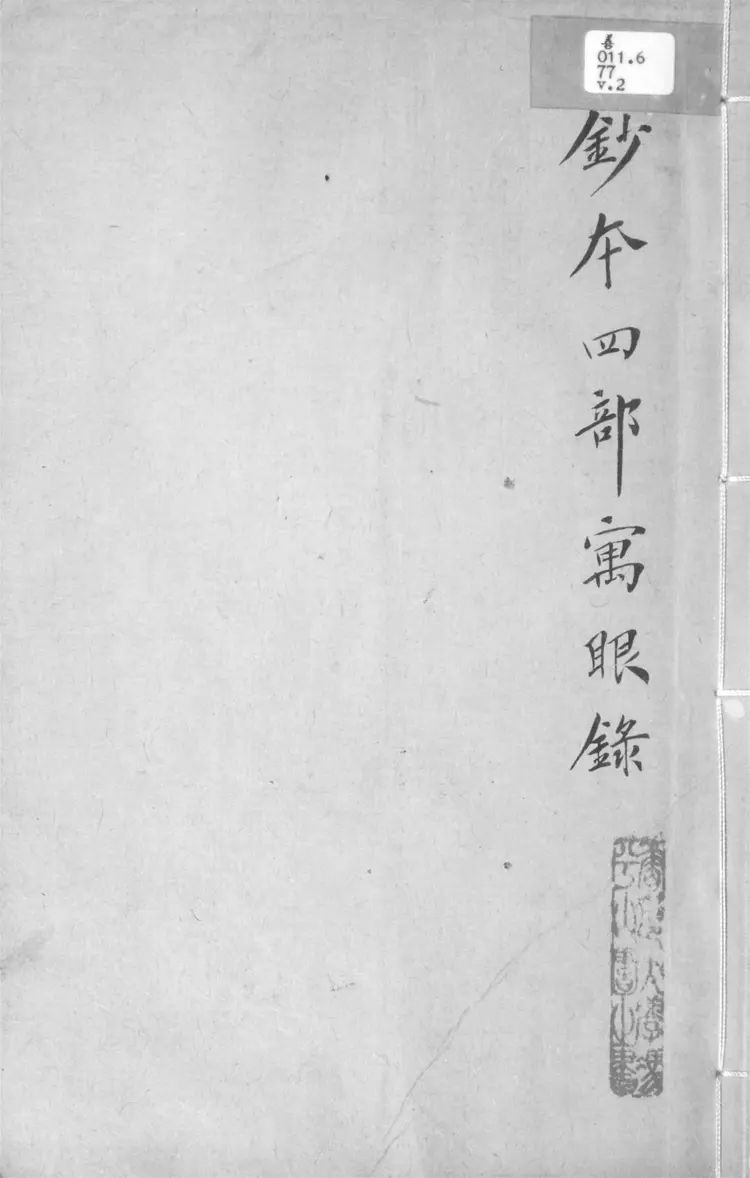 善
011.6
77
v.2
鈔本四部寓眼錄